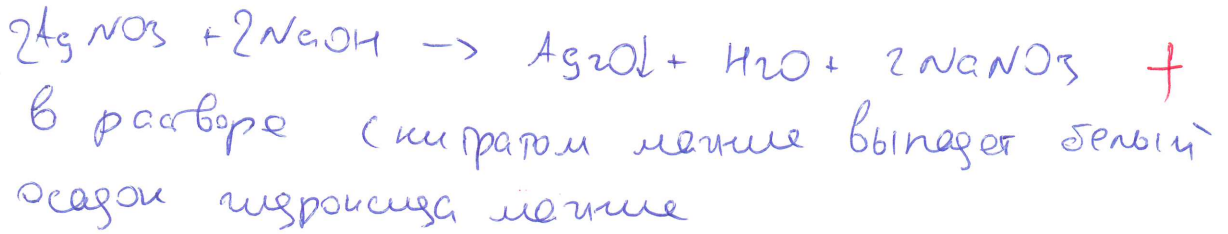 2AgNO3 + 2NaOH → Ag2O↓ + H2O + 2NaNO3 +
в растворе с нитратом магние выпадет белый
осадок гидроксида магние